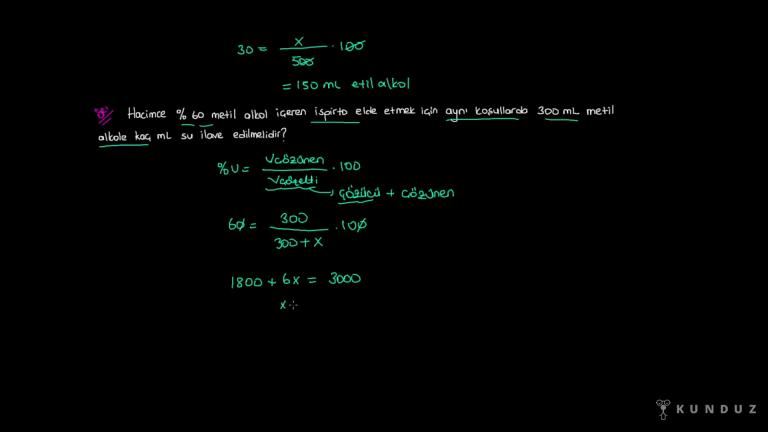 30 = x / 500 . 100
= 150 mL etil alkol
Hacimce % 60 metil alkol içeren ispirto elde etmek için aynı koşullarda 300 mL metil
alkole kaç mL su ilave edilmelidir?
%V = Vçözünen / Vçözelti . 100
çözücü + çözünen
60 = 300 / 300 + x . 100
1800 + 6x = 3000
x
KUNDUZ